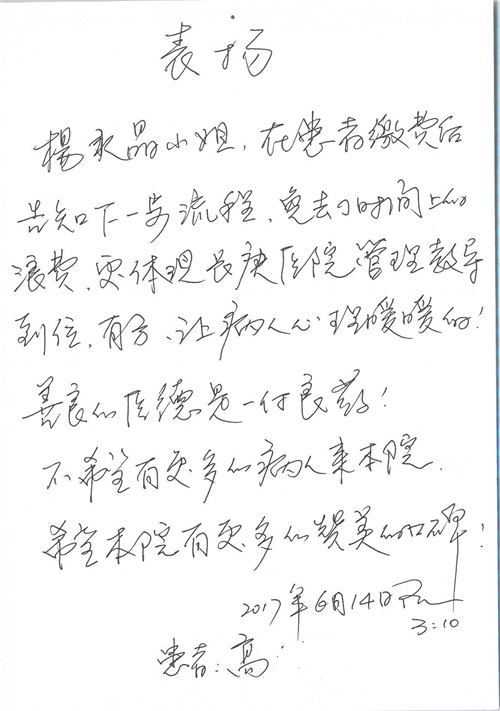 表扬
楊永晶小姐，在患者缴费后
告知下一步流程，免去了时间上的
浪费，更体现长庚医院管理教导
到位，有方，让病人心理暖暖的！
善良的医德是一付良药！
不希望有更多的病人来本院．
希望本院有更多的赞美的口碑！
2017年6月14日Pm
3:10
患者：高